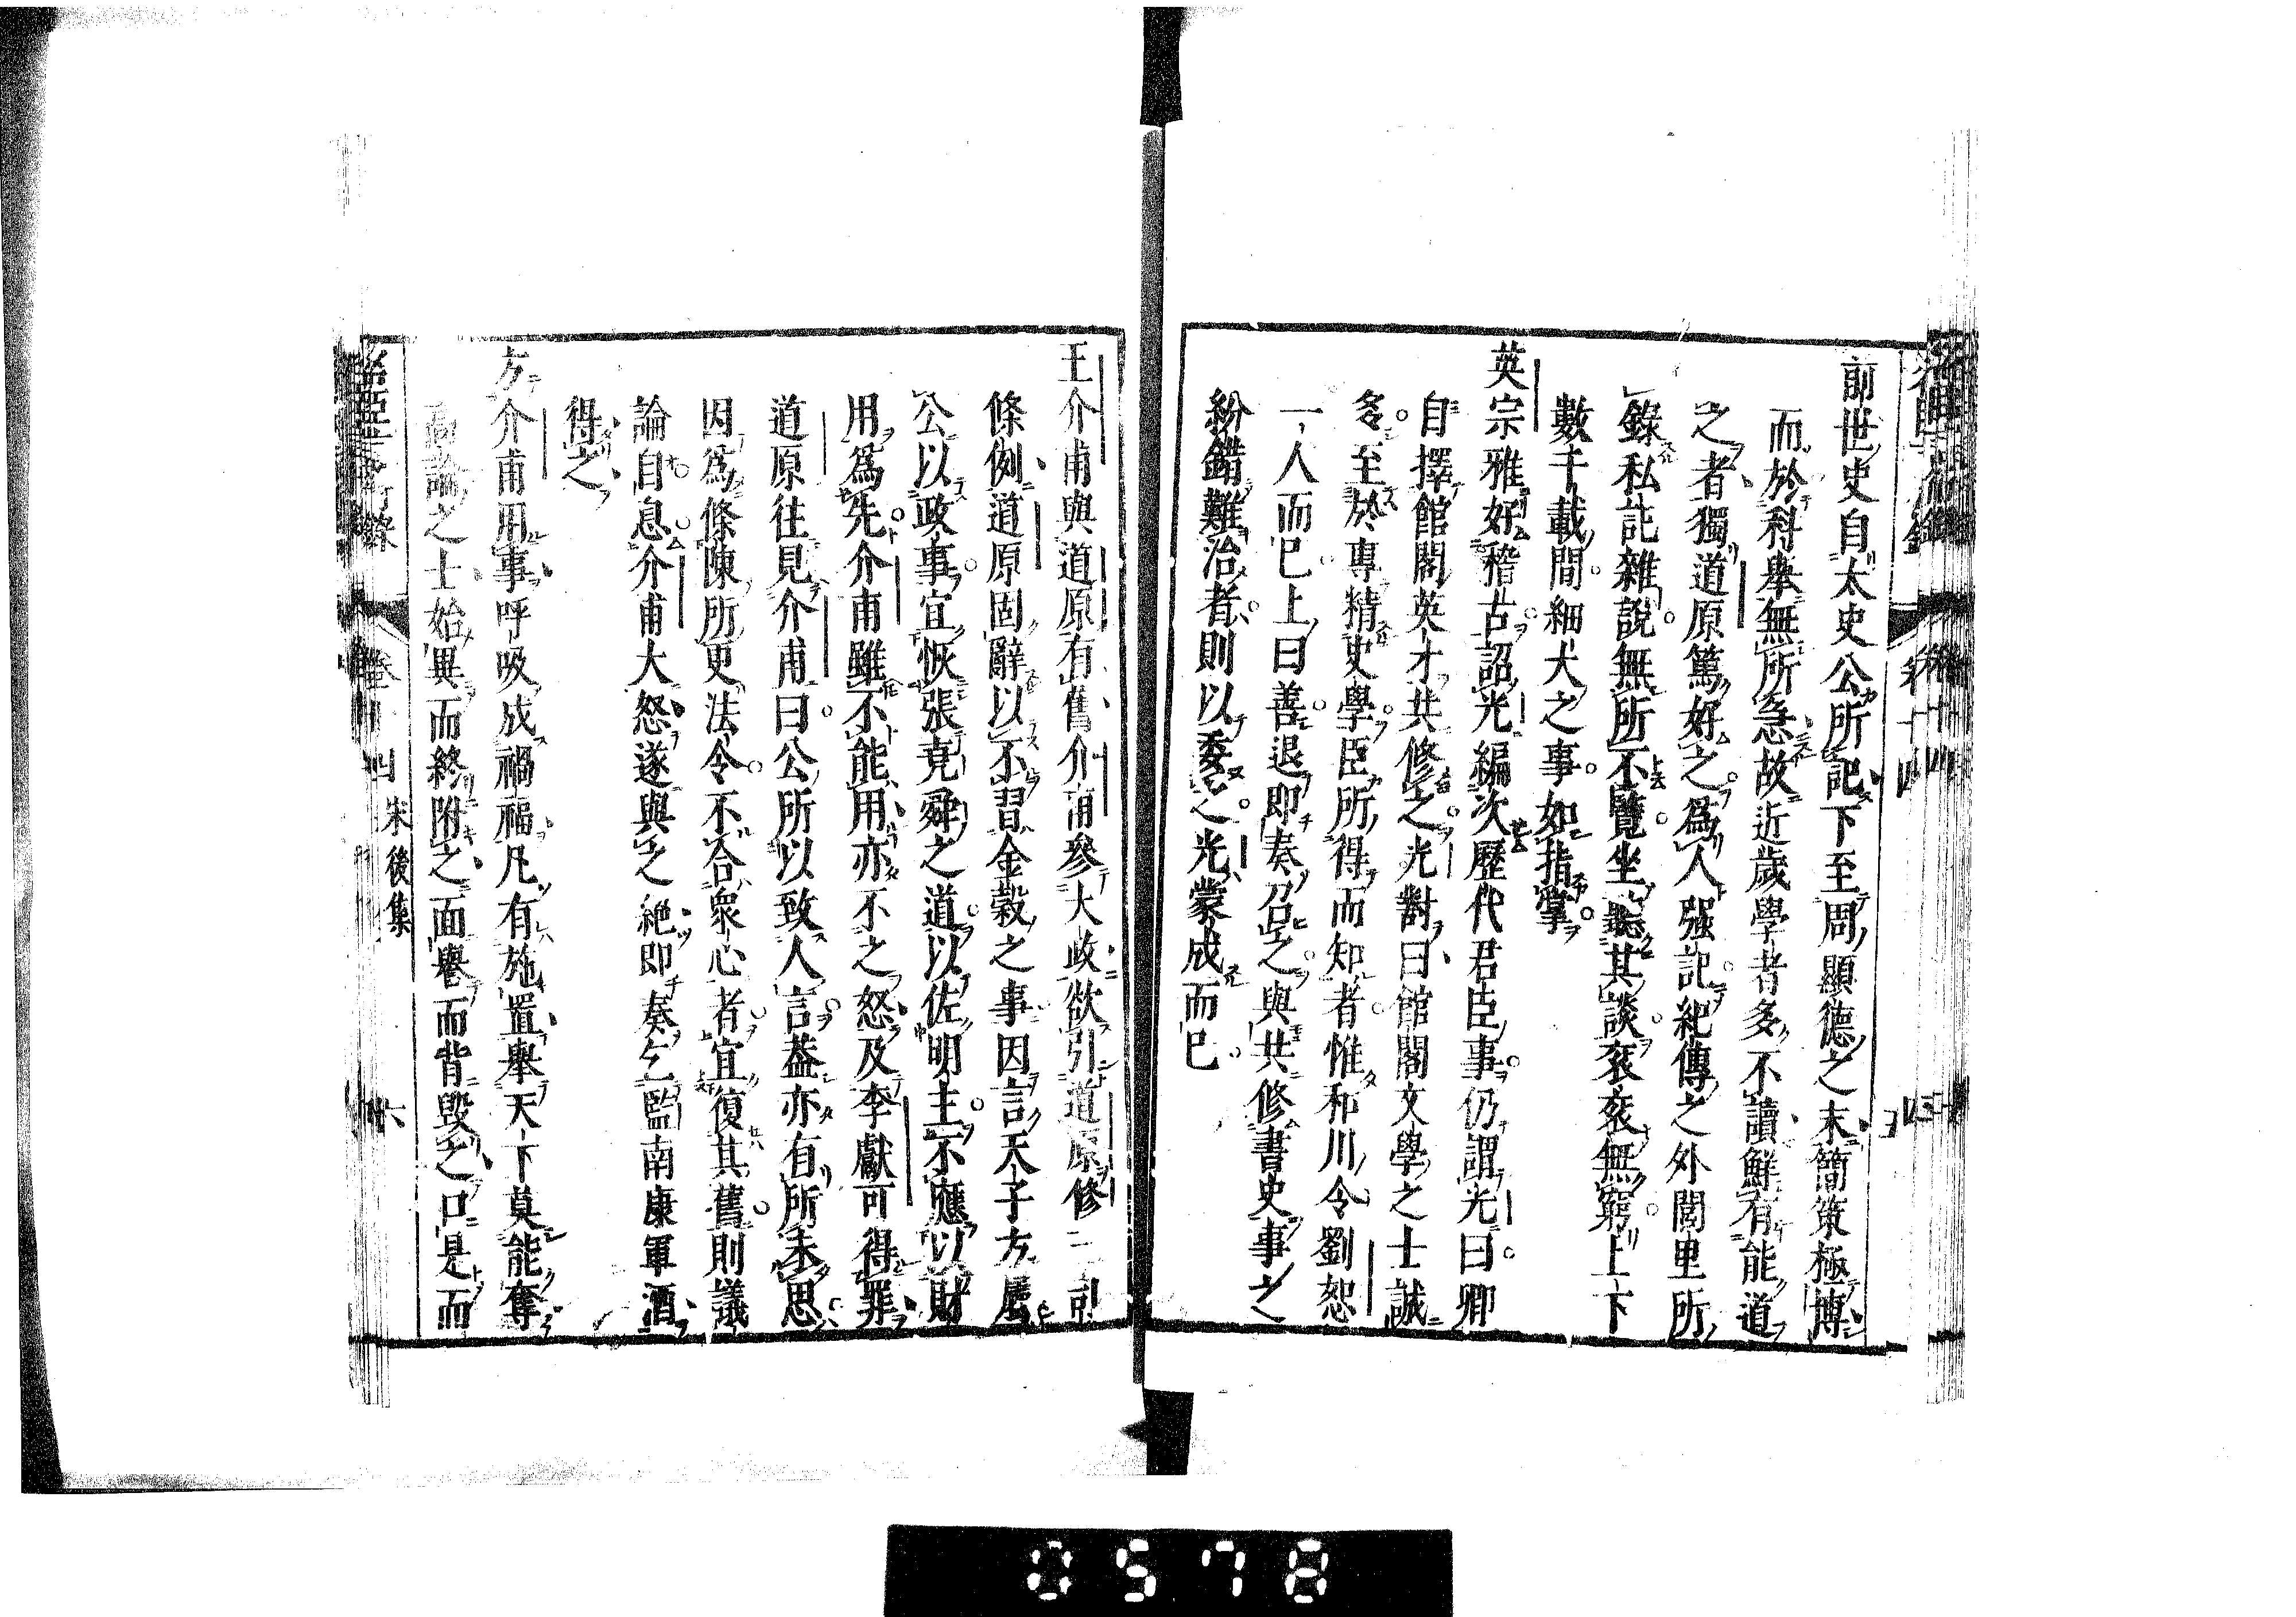 前世史自太史公所記下至周顯德之末簡策極博
而於科舉無所急故近歲學者多不讀鮮有能道
之者獨道原篤好之爲人强記紀傳之外閭里所
錄私記雜說無所不覽坐聽其談衮衮無窮上下
數千載間細大之事如指掌
英宗雅好稽古詔光編次歷代君臣事仍謂光曰卿
自擇館閣英才共修之光對曰館閣文學之士誠
多至於專精史學臣所得而知者惟和川令劉恕
一人而已上曰善退即奏召之與共修書史事之
紛錯難治者則以委之光蒙成而已
王介甫與道原有舊介甫參大政欲引道原修三司
條例道原固辭以不習金穀之事因言天子方屬
公以政事宜恢張堯舜之道以佐明主不應以財
用爲先介甫雖不能用亦不之怒及李獻可得罪
道原往見介甫曰公所以致人言葢亦有所未思
因爲條陳所更法令不合衆心者宜復其舊則議
論自息介甫大怒遂與之絶即奏乞監南康軍酒
得之
方介甫用事呼吸成禍福凡有施置舉天下莫能奪
高論之士始異而終附之面譽而背毀之口是而
卷十四 宋後集 六
0578